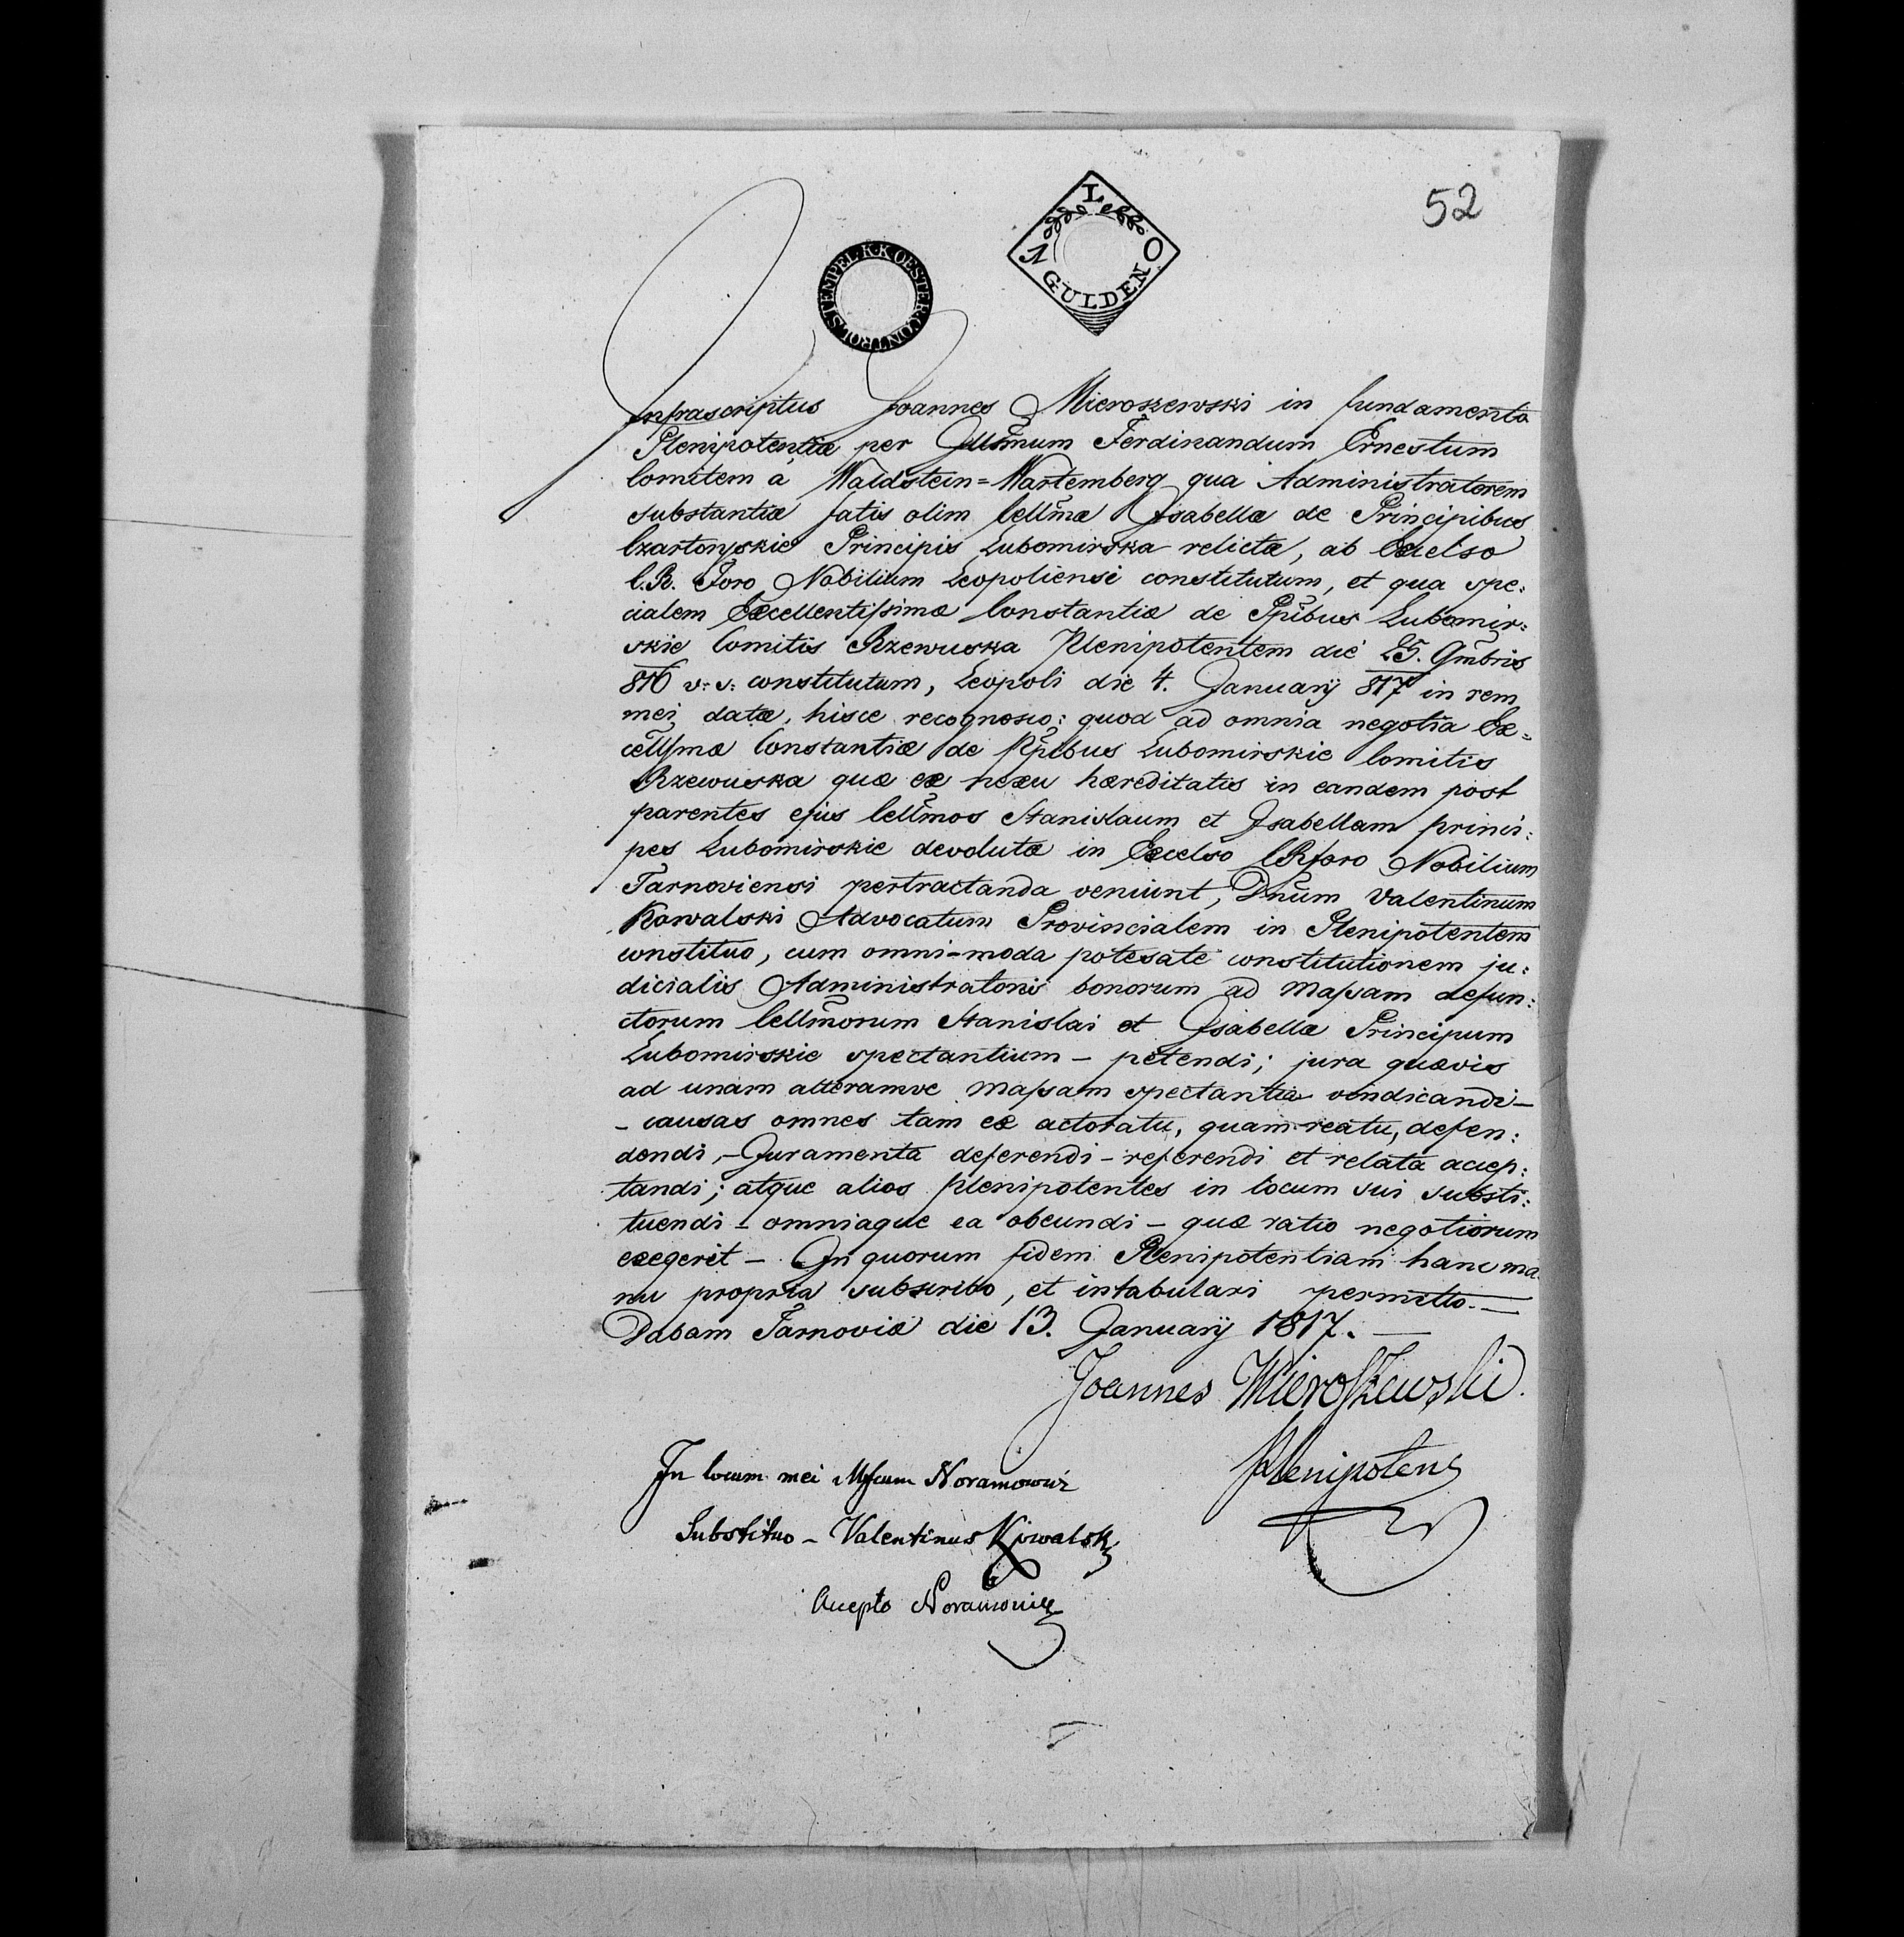 52
STEMPEL K.K OESTER CONTROL
I. GULDEN
Infrascriptus Joannes Mieroszewski in fundamento
Plenipotentiæ per Illm̃um Ferdinandum Ernestum
Comitem à Waldstein=Wartemberg qua Administratorem
substantiæ fatis olim Cellm̃æ Isabellæ de Principibus
Czartoryskie Principis Lubomirska relictæ, ab Excelso
C.R. Foro Nobilium Leopoliensi constitutum, et qua spe:
cialem Excellentissimæ Constantiæ de Ppibus Lubomir:
skie Comitis Rzewuska Plenipotentem die 25. 9mbris
816 v: s: constitutum, Leopoli die 4. January 817 in rem
mei datæ, hisce recognosco: quod ad omnia negotia Ex=
cellsmæ Constantiæ de Ppibus Lubomirskie Comitis
Rzewuska quæ ex nexu hæreditatis in eandem post
parentes ejus Cellm̃os Stanislaum et Isabellam princi:
pes Lubomirskie devolutæ in Excelso CRforo Nobilium
Tarnoviensi pertractanda veniunt, Dnum Valentinum
Kowalski Advocatum Provincialem in Plenipotentem
constituo, cum omni-moda potesate constitutionem ju:
dicialis Administratoris bonorum ad Massam defun:
ctorum Cellmorum Stanislai et Isabellæ Principum
Lubomirskie spectantium – petendi; jura quævis
ad unam alteramve Massam spectantia vindicandi –
– causas omnes tam ex actoratu, quam reatu, defen:
dendi, – Juramenta deferendi – referendi et relata accep:
tandi; atque alios Plenipotentes in locum sui substi:
tuendi – omniaque ea obeundi – quæ ratio negotiorum
exegerit – In quorum fidem Plenipotentiam hanc ma
nu propria subscribo, et intabulari permitto. –
Dabam Tarnoviæ die 13. January 1817. –
Joannes Mieroszewski
Plenipotens
In locum mei
Substituo – Valentinus Kowalski
Accepto